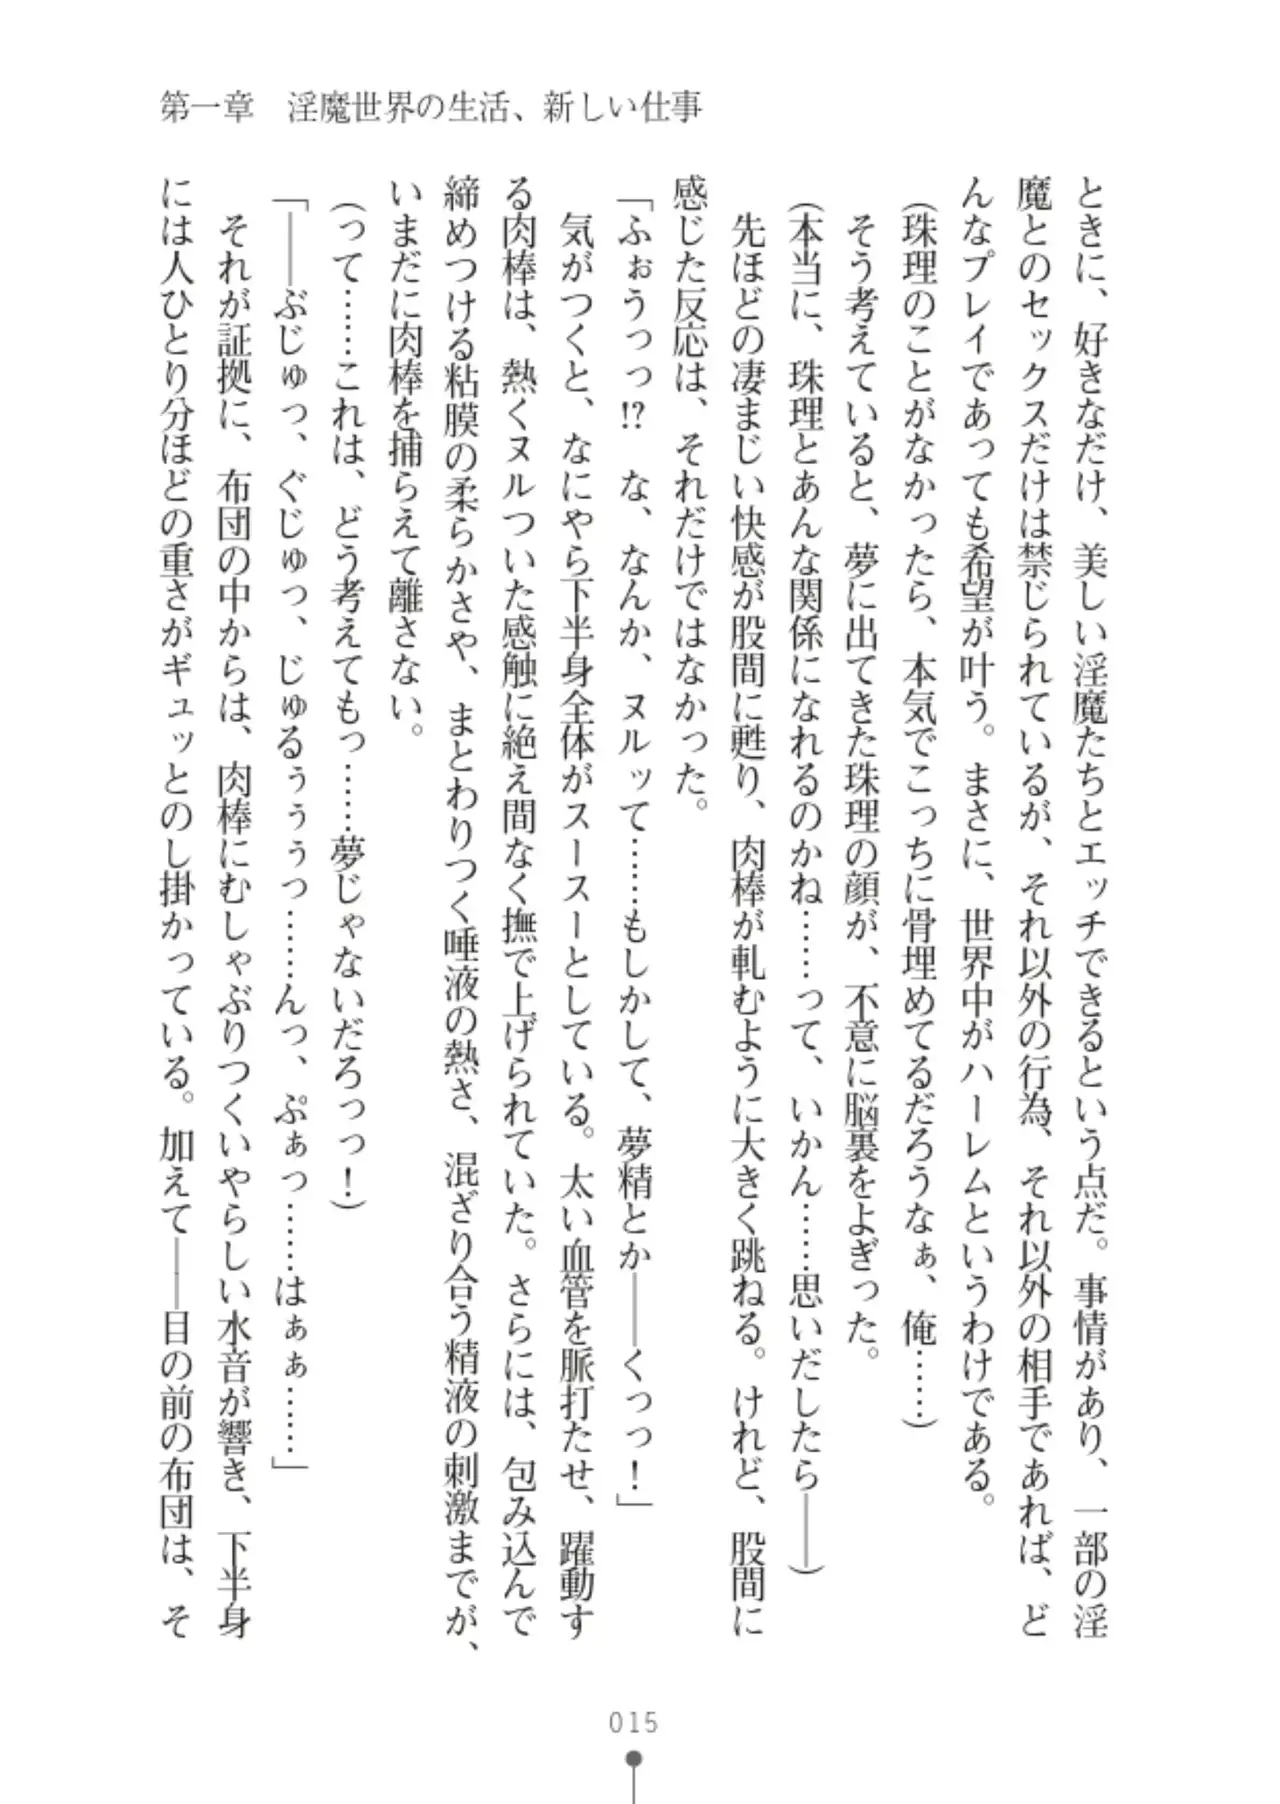 第一章　淫魔世界の生活、新しい仕事
ときに、好きなだけ、美しい淫魔たちとエッチできるという点だ。事情があり、一部の淫
魔とのセックスだけは禁じられているが、それ以外の行為、それ以外の相手であれば、ど
んなプレイであっても希望が叶う。まさに、世界中がハーレムというわけである。
（珠理のことがなかったら、本気でこっちに骨埋めてるだろうなぁ、俺……）
そう考えていると、夢に出てきた珠理の顔が、不意に脳裏をよぎった。
（本当に、珠理とあんな関係になれるのかね……って、いかん……思いだしたら――）
先ほどの凄まじい快感が股間に甦り、肉棒が軋むように大きく跳ねる。けれど、股間に
感じた反応は、それだけではなかった。
「ふぉうっっ!?　な、なんか、ヌルッて……もしかして、夢精とか――くっっ！」
気がつくと、なにやら下半身全体がスースーとしている。太い血管を脈打たせ、躍動す
る肉棒は、熱くヌルついた感触に絶え間なく撫で上げられていた。さらには、包み込んで
締めつける粘膜の柔らかさや、まとわりつく唾液の熱さ、混ざり合う精液の刺激までが、
いまだに肉棒を捕らえて離さない。
（って……これは、どう考えてもっ……夢じゃないだろっっ！）
「――ぶじゅっ、ぐじゅっ、じゅるぅぅぅっ……んっ、ぷぁっ……はぁぁ……」
それが証拠に、布団の中からは、肉棒にむしゃぶりつくいやらしい水音が響き、下半身
には人ひとり分ほどの重さがギュッとのし掛かっている。加えて――目の前の布団は、そ
015